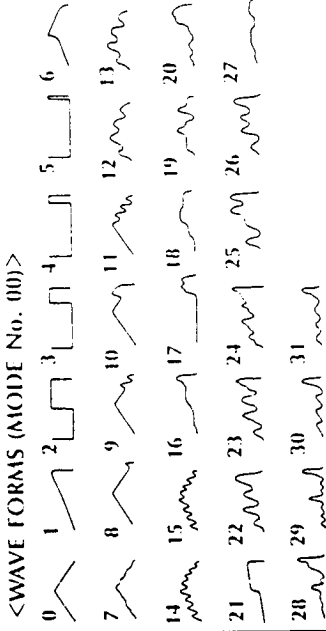 <WAVE FORMS (MODE No. 00)>
0 1 2 3 4 5 6
7 8 9 10 11 12 13
14 15 16 17 18 19 20
21 22 23 24 25 26 27
28 29 30 31